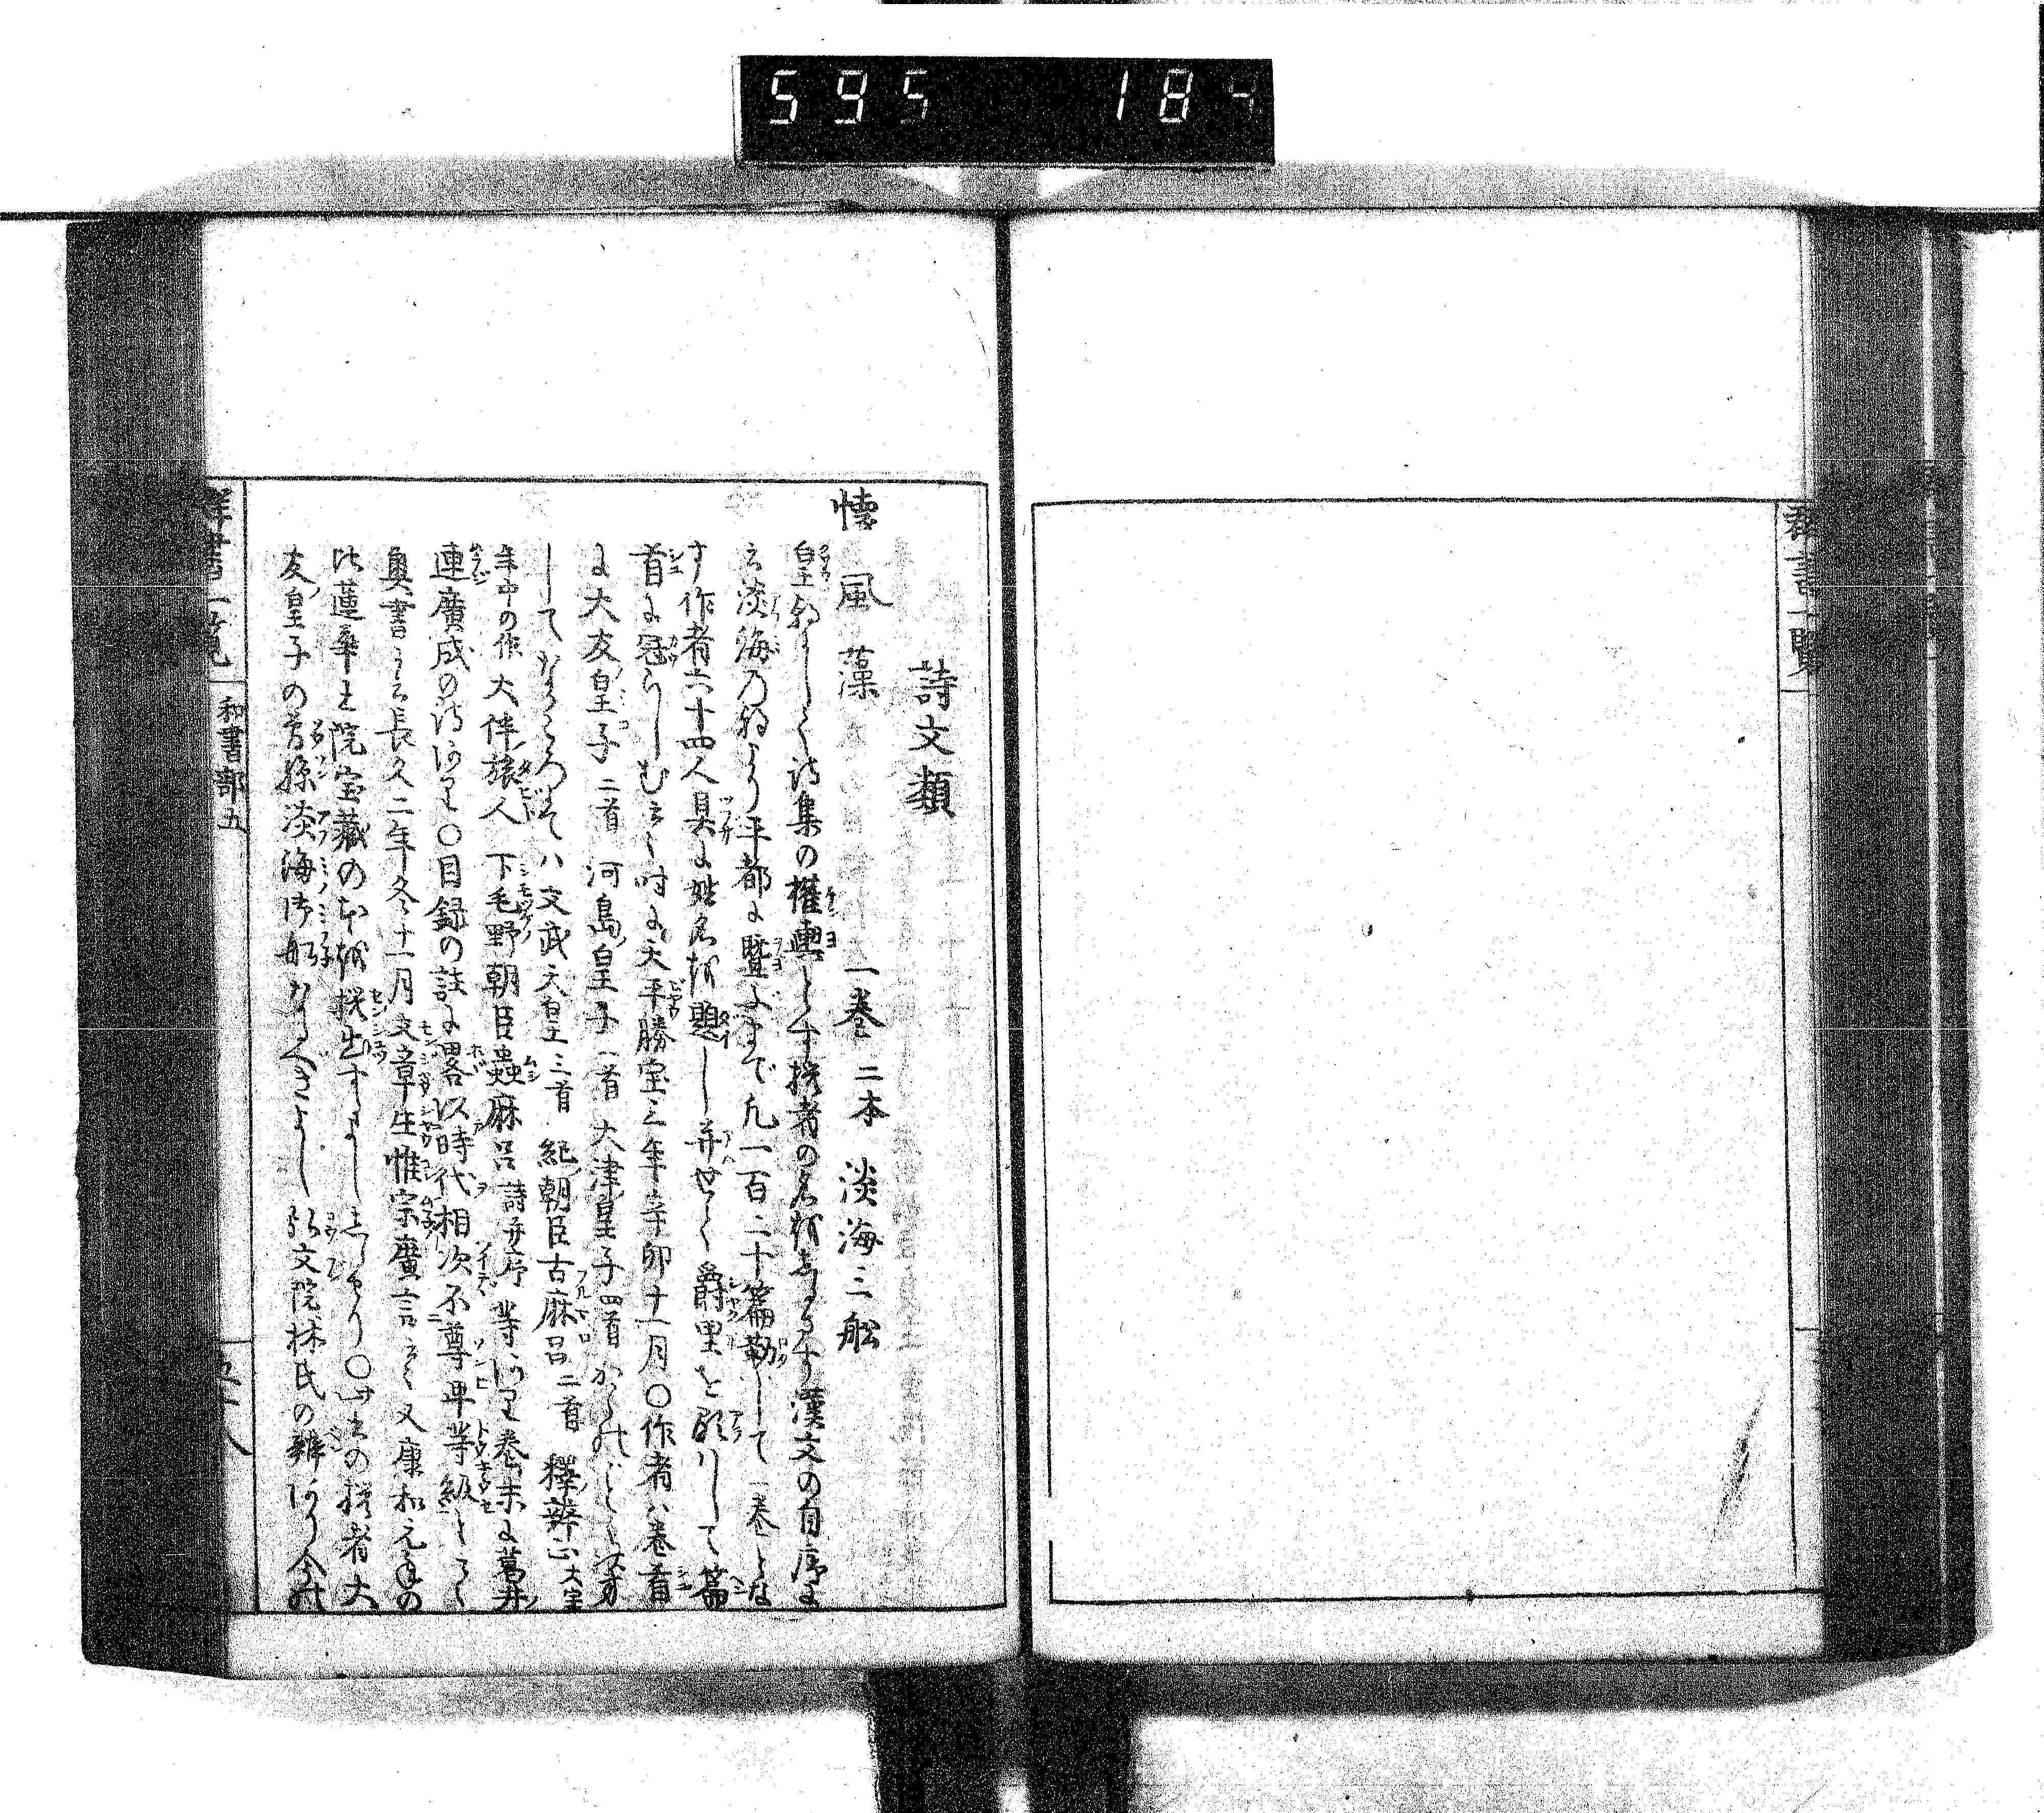 595 184
群書一覧
詩文類
懐風藻 一巻 二本 淡海三舩
皇朝にして詩集の権輿とす撰者の名を志るさず漢文の自序に
云淡海乃朝より平都に曁ぶまで凡一百二十篇勒して一巻とな
す作者六十四人具に姓名を題し并せて爵里を顕はして篇
首に冠らしむ云々時に天平勝宝三年辛卯十一月〇作者ハ巻首
に大友皇子二首 河島皇子一首 大津皇子四首
して ハ文武天皇三首 紀朝臣古麻呂二首 釋辨正大宝
年中の作 大伴旅人 下毛野朝臣蟲麻呂詩并序 等あり巻末に葛井
連廣成の詩あり〇目録の註に畧以時代相次不尊卑等級として
奥書に云長久二年冬十一月文章生惟宗廣言云々又康和元年の
比蓮華王院宝蔵の本を撰出すよし志るせり〇 の撰者大
友皇子の曽孫淡海御舩なるべきよし弘文院林氏の辨あり今の
群書一覧 和書部五